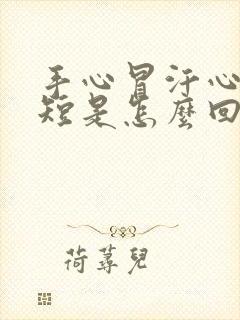 手心冒汗心
短是怎麼回
荷蕁兒